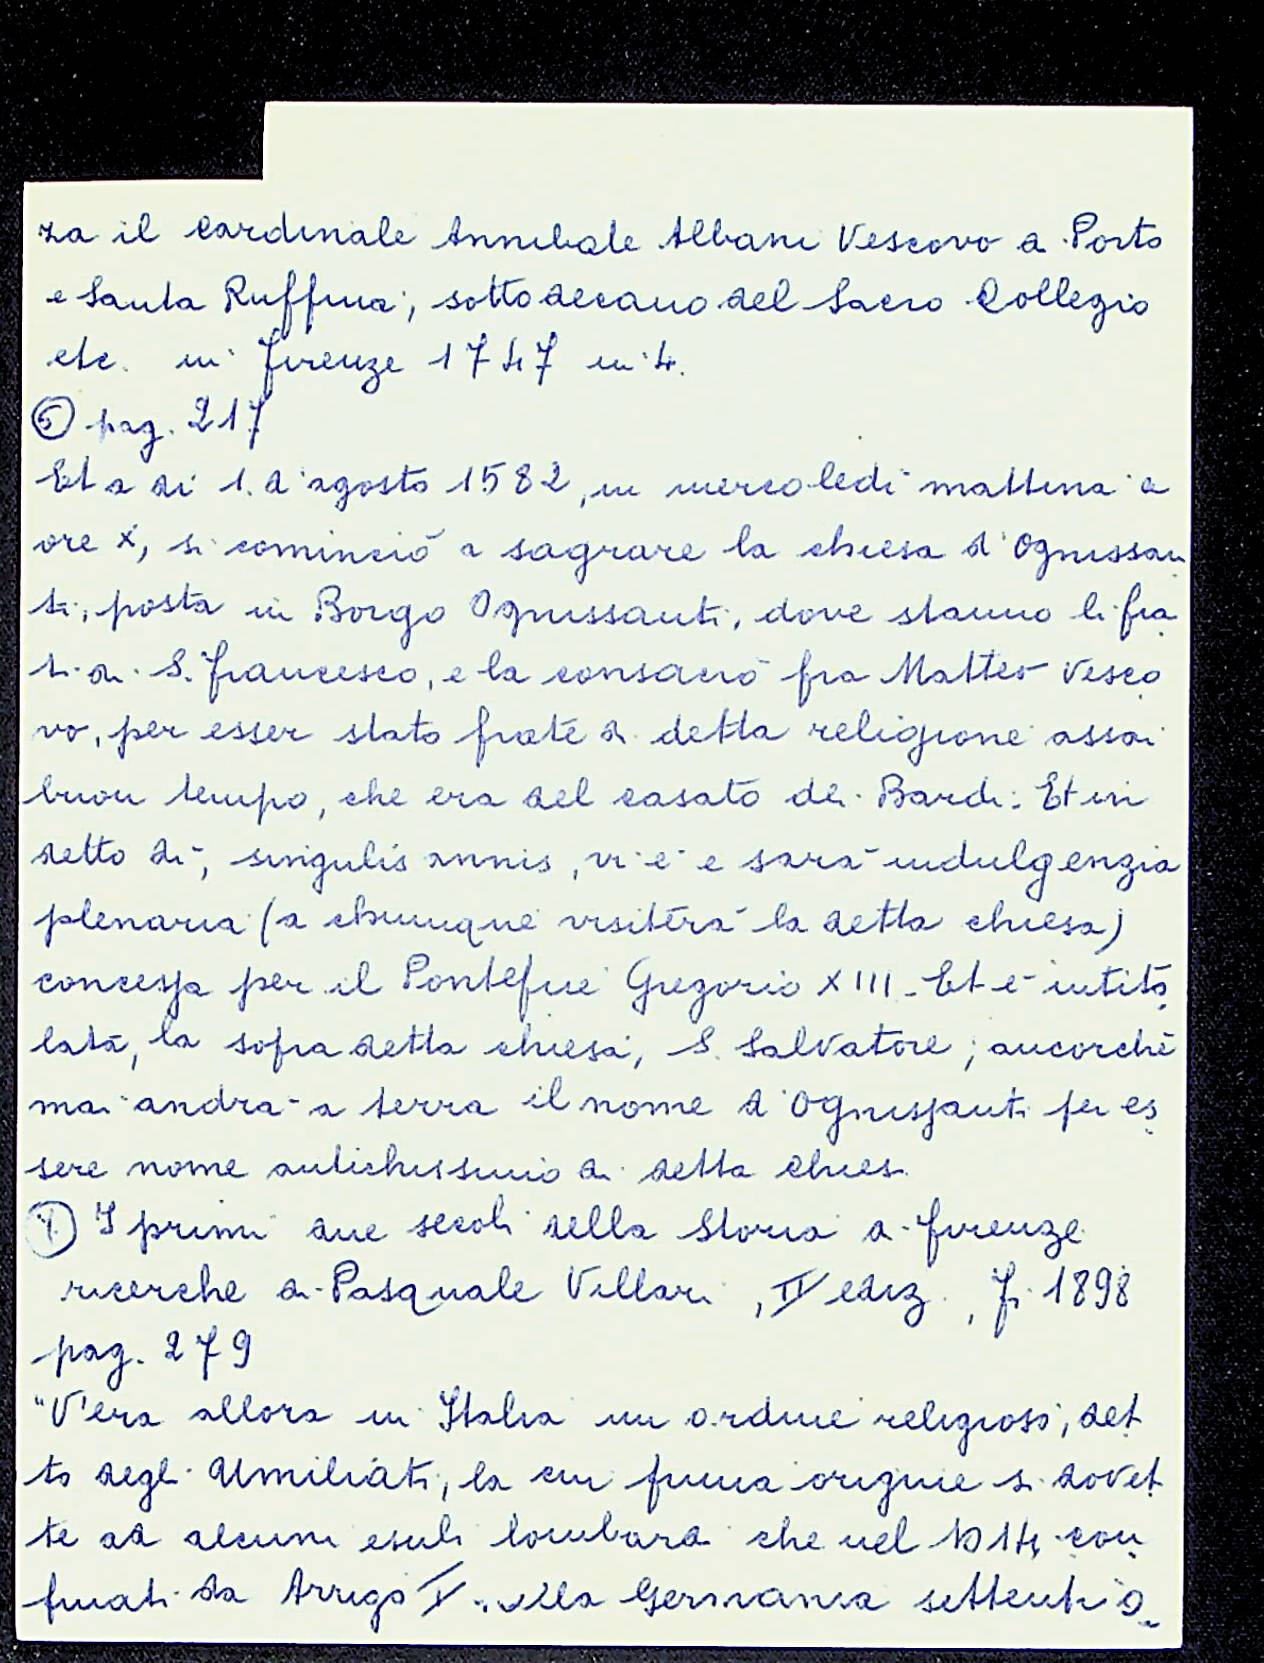 za il Cardinale Annibale Albani Vescovo a Porto
e Santa Ruffina, sotto decano del Sacro Collegio
etc. in Firenze 1747 in 4.
⑤ pag. 217
Et a dì 1. d'agosto 1582, in mercoledì mattina a
ore X, si cominciò a sagrare la chiesa d'Ognissan
ti, posta in Borgo Ognissanti, dove stanno li fra
ti di S. Francesco, e la consacrò fra Matteo Vesco
vo, per esser stato frate di detta religione assai
buon tempo, che era del casato dei Bardi. Et in
detto dì, singulis annis, vi è e sarà indulgenzia
plenaria (a chiunque visiterà la detta chiesa)
concessa per il Pontefice Gregorio XIII. Et è intito
lata, la sopra detta chiesa, S. Salvatore; ancorchè
mai andrà a terra il nome d'Ognissanti per es
sere nome antichissimo di detta chies.
① I primi due secoli della Storia di Firenze
ricerche di Pasquale Villari, II ediz., Fi. 1898
pag. 279
"V'era allora in Italia un ordine religioso, det
to degli Umiliati, la cui prima origine si dovet
te ad alcuni esuli lombardi che nel 1014, con
finati da Arrigo I nella Germania settentrio